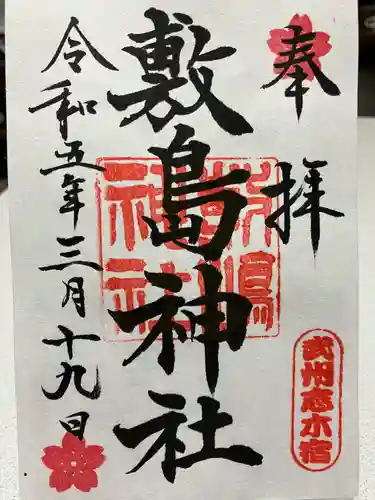 奉拝
敷島神社
敷島神社
令和五年三月十九日
武州志木宿